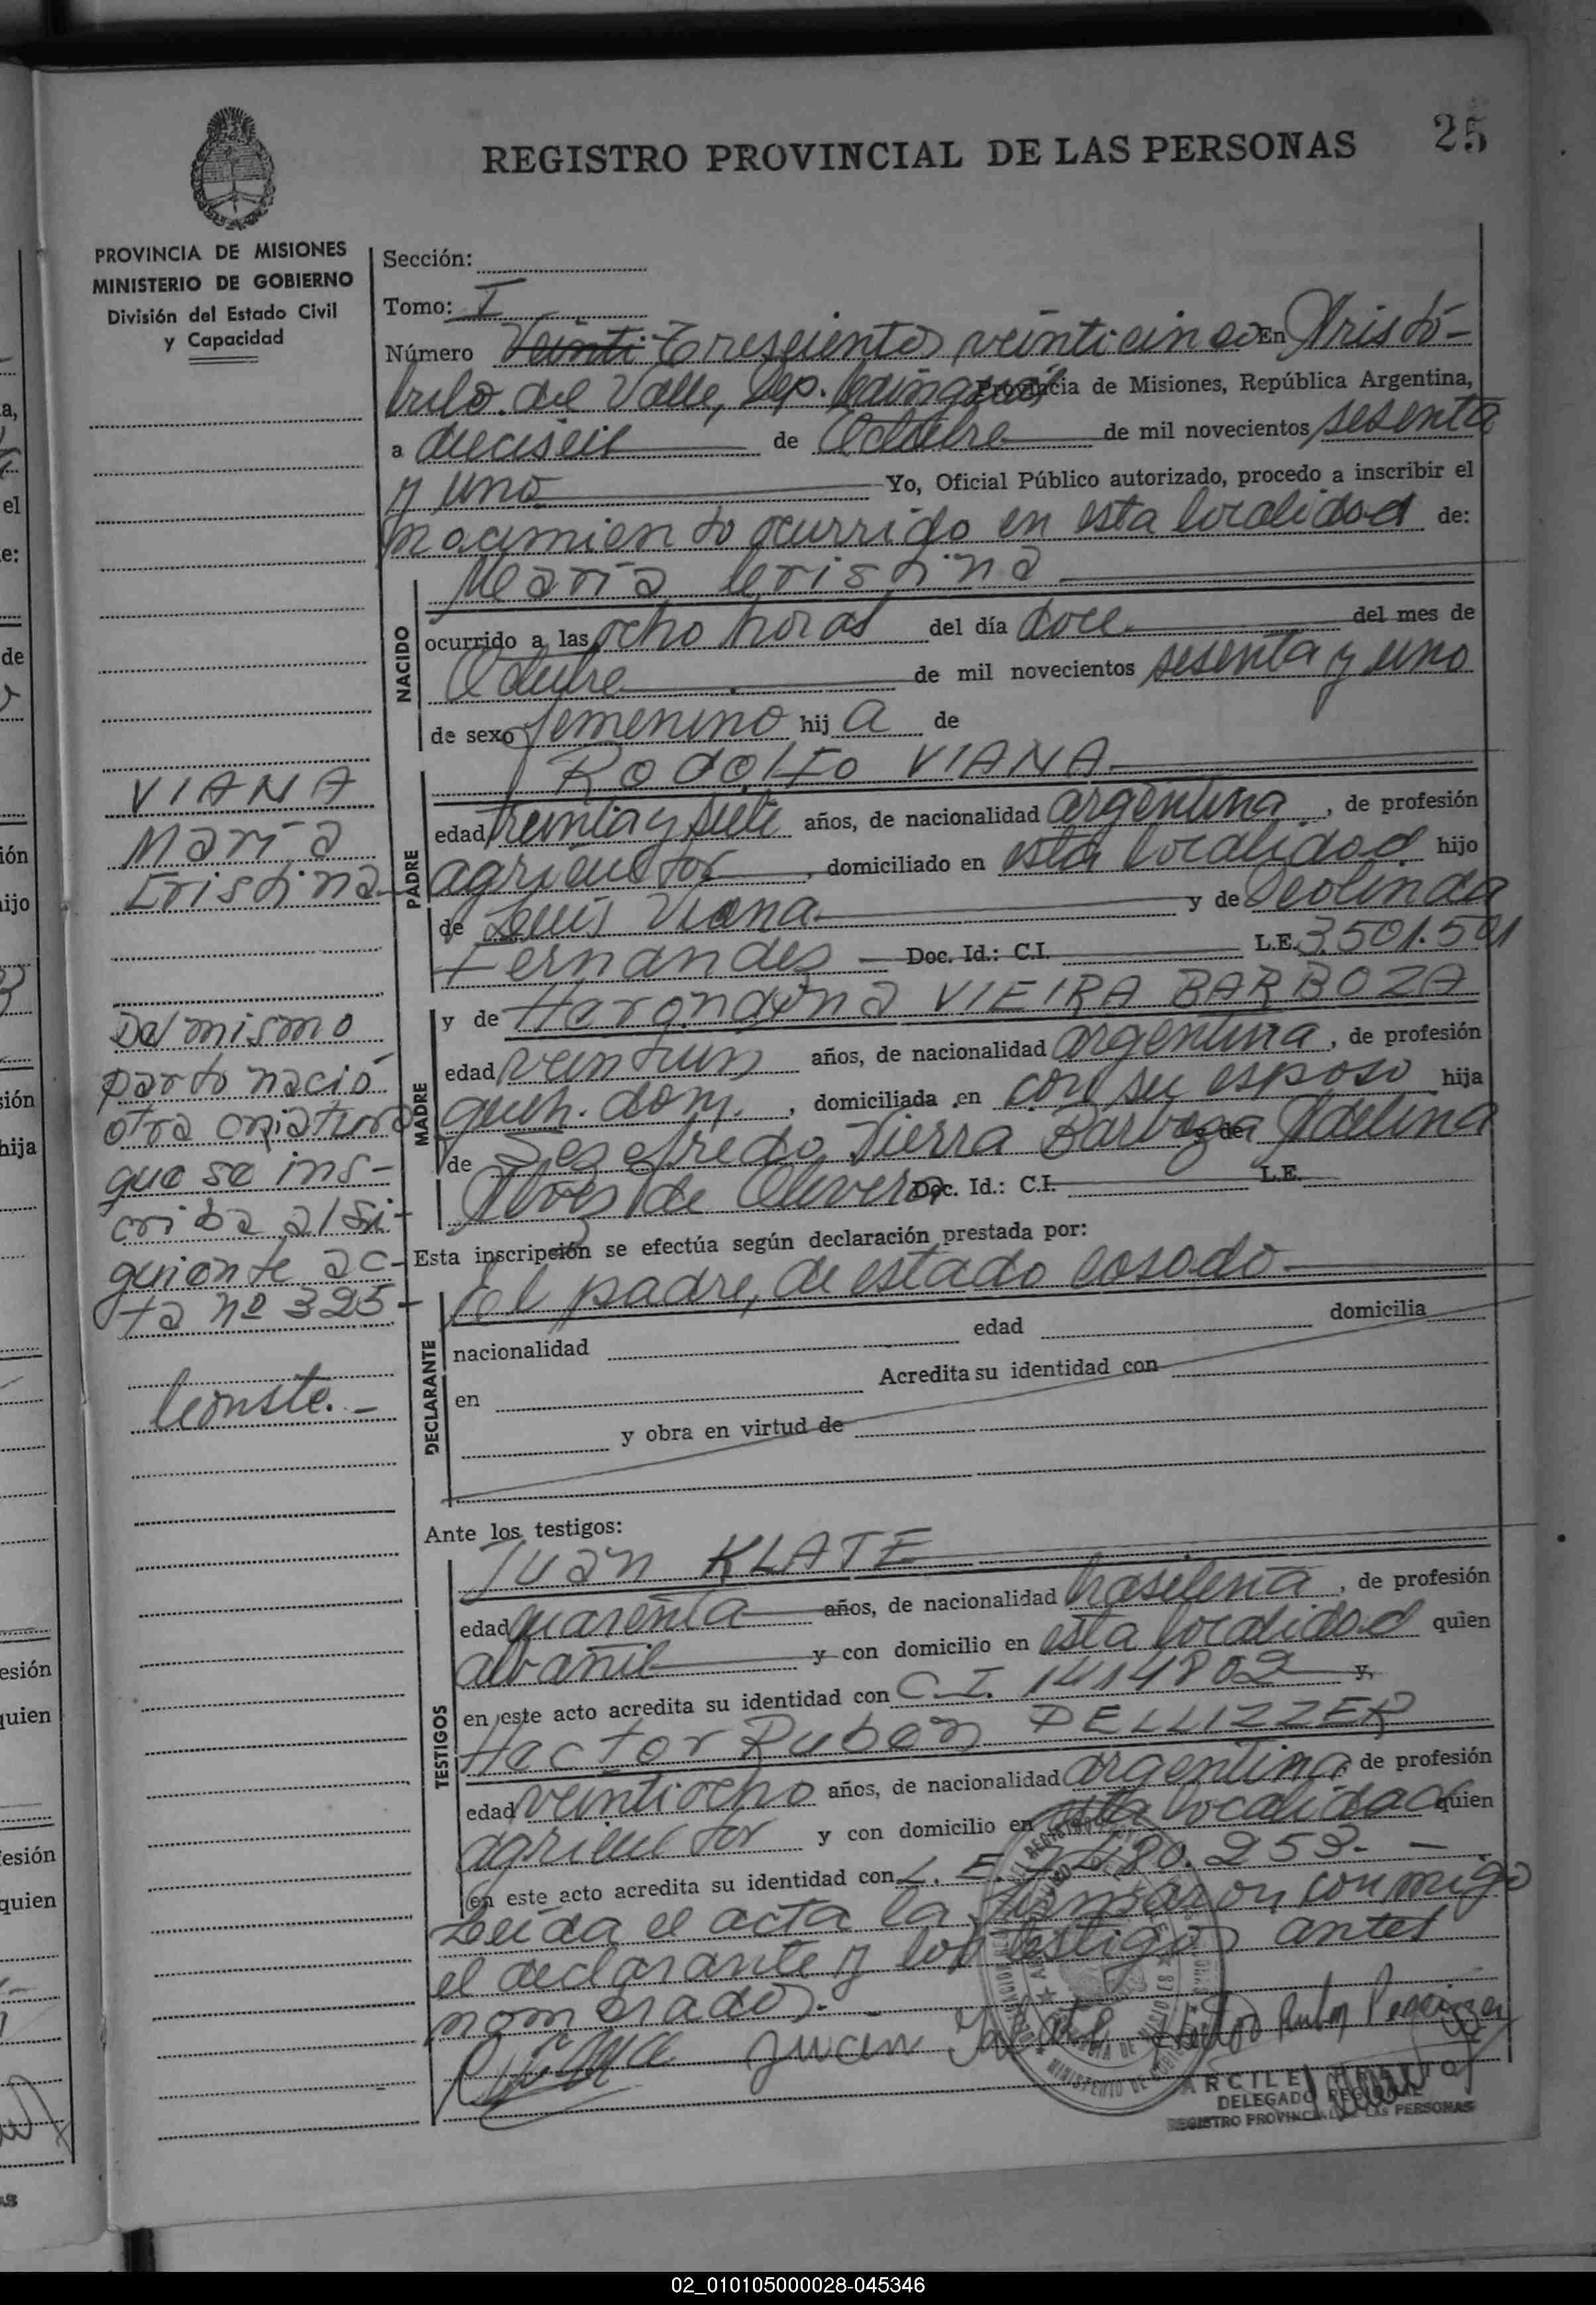 25
REGISTRO PROVINCIAL DE LAS PERSONAS
PROVINCIA DE MISIONES
MINISTERIO DE GOBIERNO
División del Estado Civil
y Capacidad
VIANA
María
Cristina
Del mismo
parto nació
otra criatura
que se ins-
cribe al si-
guiente ac-
ta nº 325-
Conste.-
Sección:
Tomo: I
Número Veinti Trescientos veinticinco En Aristó-
bulo del Valle, Dep. Cainguás Provincia de Misiones, República Argentina,
a dieciseis de Octubre de mil novecientos sesenta
y uno Yo, Oficial Público autorizado, procedo a inscribir el
nacimiento ocurrido en esta localidad de:
NACIDO
María Cristina
ocurrido a las ocho horas del día doce del mes de
Octubre de mil novecientos sesenta y uno
de sexo femenino hij a de
PADRE
Rodolfo VIANA
edad treinta y siete años, de nacionalidad argentina, de profesión
agricultor, domiciliado en esta localidad hijo
de Luis Viana y de Deolinda
Fernandes Doc. Id.: C.I. L.E. 3.501.501
MADRE
y de VIEIRA BARBOZA
edad veintiun años, de nacionalidad argentina, de profesión
queh. dom., domiciliada en con su esposo hija
de Sezefredo Vierra Barboza y de Adelina
Alves de Olivera Doc. Id.: C.I. L.E.
Esta inscripción se efectúa según declaración prestada por:
DECLARANTE
El padre, de estado casado
nacionalidad edad domicilia
en Acredita su identidad con
y obra en virtud de
Ante los testigos:
TESTIGOS
Juan KLATE
edad cuarenta años, de nacionalidad brasileña, de profesión
albañil y con domicilio en esta localidad quien
en este acto acredita su identidad con C.I. 1414802 y,
Hector Ruben PELLIZZER
edad veintiocho años, de nacionalidad argentina, de profesión
agricultor y con domicilio en esta localidad quien
en este acto acredita su identidad con L.E. 480.253.-
Leída el acta la firmaron conmigo
el declarante y los testigos antes
nombrados.-
Juan Klate Hector Ruben Pellizzer
DELEGADO REGIONAL
REGISTRO PROVINCIAL DE LAS PERSONAS
a,
el
e:
de
ión
ijo
sión
hija
esión
quien
esión
quien
AS
02_010105000028-045346